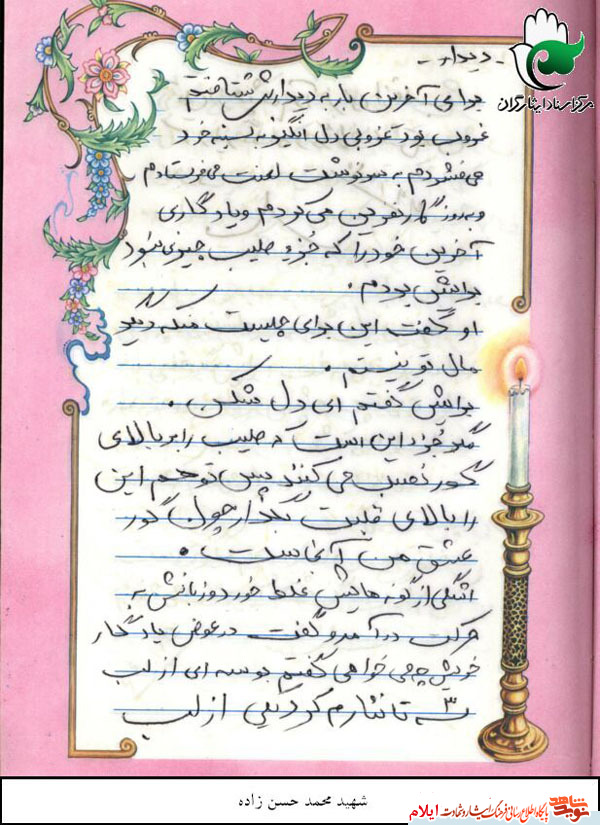 - دیدار -
مرکز اسناد ایثارگران
برای آخرین بار به دیدارش شتافتم
غروب بود غروبی دل انگیز به سینه خود
می فشردم به سرنوشت لعنت می فرستادم
و به روزگار نفرین می کردم و یادگاری
آخرین خود را که جُز و صلیب چیزی نبود
برایش بردم .
او گفت این برای چیست منکه دیگر
مال تو نیستم .
برایش گفتم ای دل شکن .
مگر جُز این است که صلیب را بر بالای
گور نصب می کنند پس تو هم این
را بالای قلبت بگذار چون گور
عشق من آنجاست .
اشکی از گونه هایش غلط خورد و زبانش به
حرکت درآمد و گفت در عوض یادگار
خودش چه می خواهی گفتم بوسه ای از لب
۳ سه تا نثارم کرد یکی از لب
شهید محمد حسن زاده
نوید شاهد
پایگاه اطلاع رسانی فرهنگ ایثار و شهادت ایلام